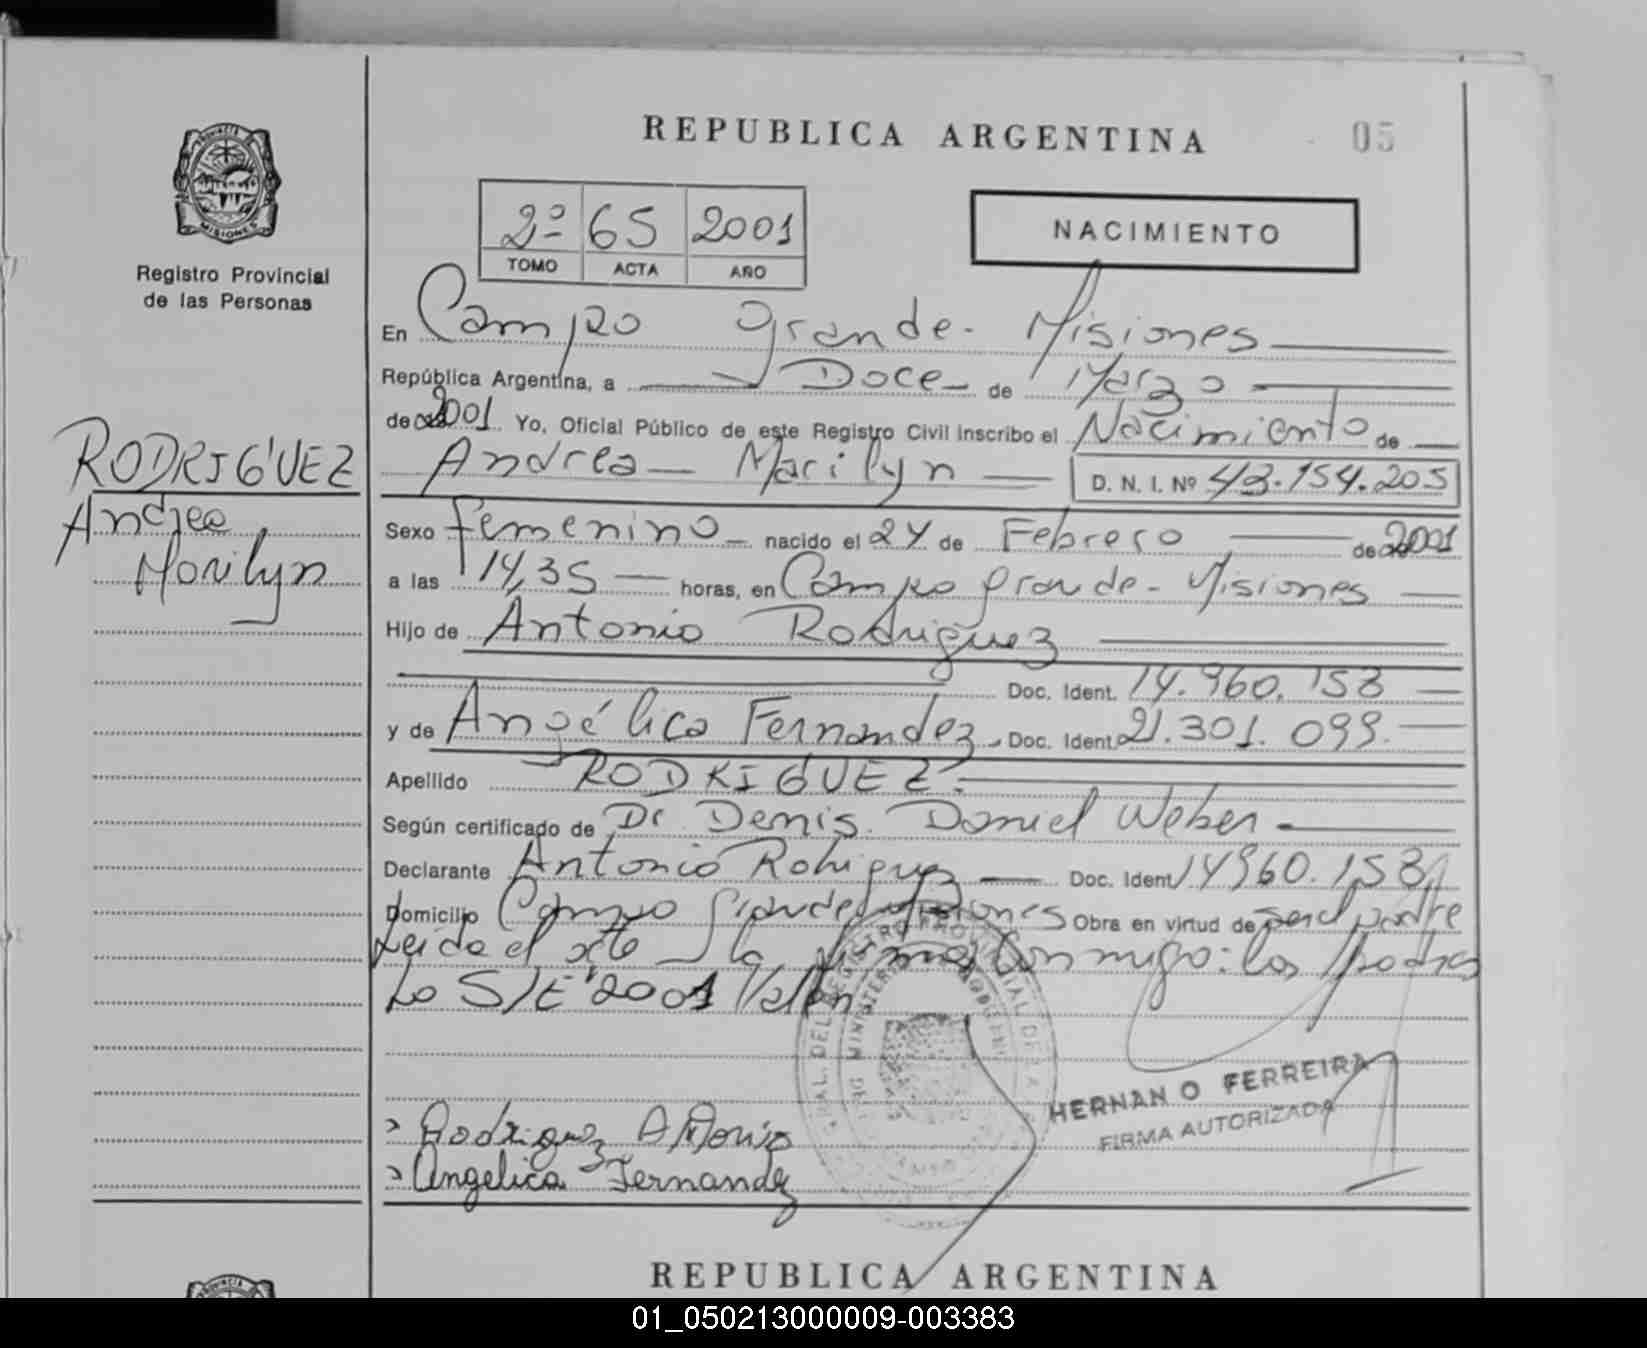 REPUBLICA ARGENTINA
05
PROVINCIA
MISIONES
Registro Provincial
de las Personas
2º 65 2001
TOMO ACTA AÑO
NACIMIENTO
En Campo Grande - Misiones
República Argentina, a Doce de Marzo
de 2001 Yo, Oficial Público de este Registro Civil inscribo el Nacimiento de
Andrea Marilyn D. N. I. Nº 43.154.205
RODRIGUEZ
Andrea
Marilyn
Sexo femenino nacido el 24 de Febrero de 2001
a las 14,35 horas, en Campo Grande - Misiones
Hijo de Antonio Rodriguez
Doc. Ident. 14.960.158
y de Angélica Fernandez Doc. Ident. 21.301.099.
Apellido RODRIGUEZ.
Según certificado de Dr. Denis Daniel Weber
Declarante Antonio Rodriguez Doc. Ident. 14960.158
Domicilio Campo Grande Misiones Obra en virtud de ser el padre
Leida el acta la firman conmigo: los padres
Lo S/E "2001 Valen
HERNAN O FERREIRA
FIRMA AUTORIZADA
Rodriguez Antonio
Angelica Fernandez
REPUBLICA ARGENTINA
01_050213000009-003383